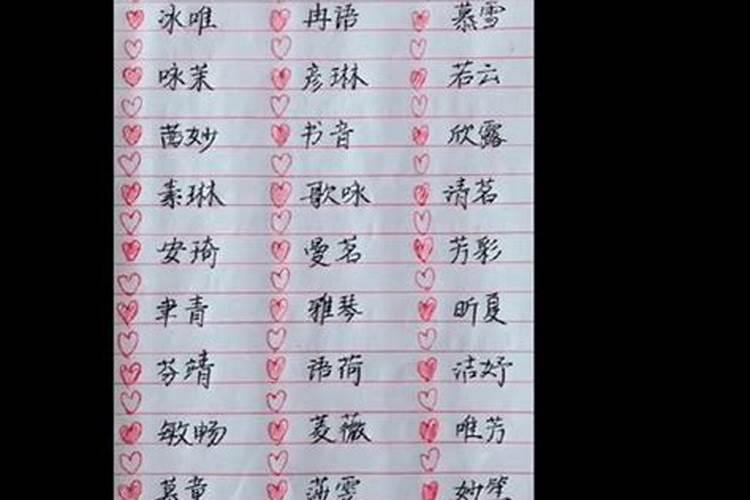 冰唯 冉语 慕雪
咏茉 彦琳 若云
茜妙 书音 欣露
素琳 歌咏 清茗
安琦 曼茗 芳彩
聿青 雅琴 昕夏
芬靖 语荷 洁妤
敏畅 菱薇 唯芳
慕童